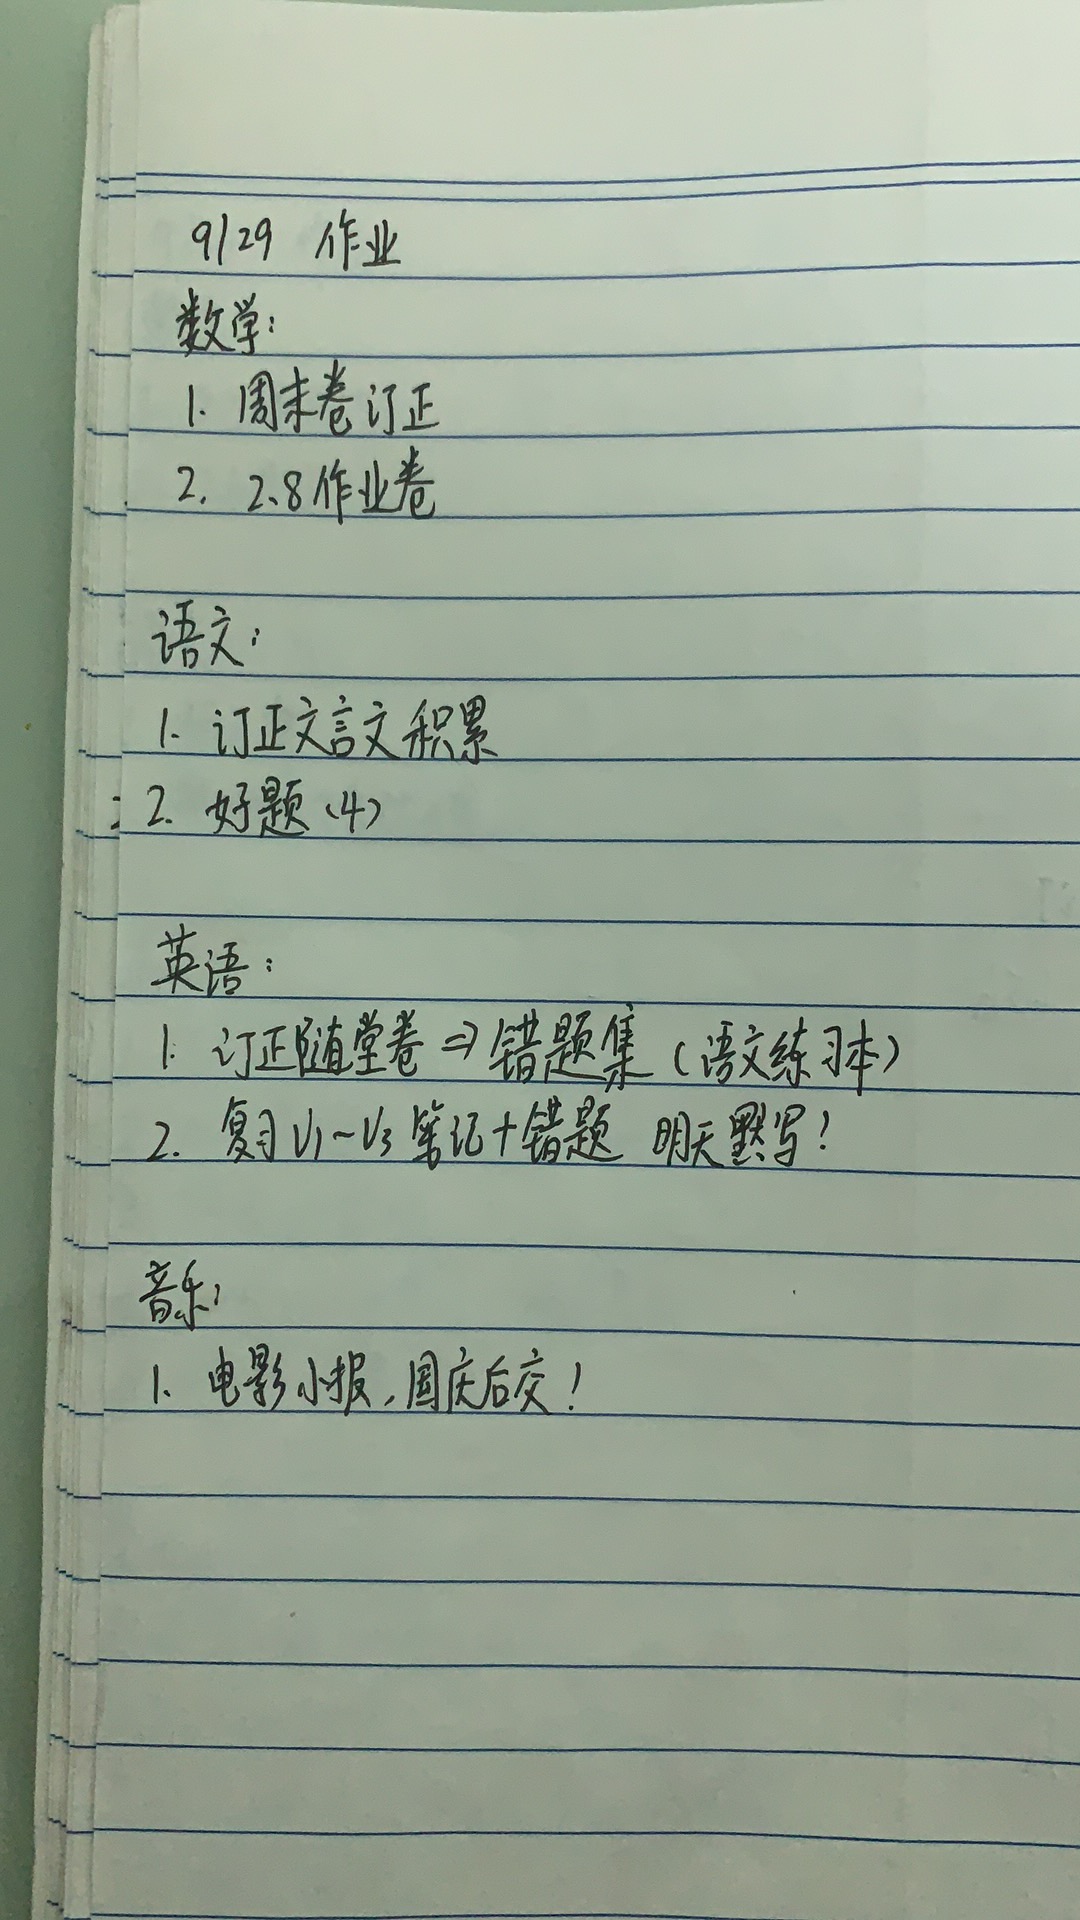 9/29 作业
数学:
1. 周末卷订正
2. 2.8作业卷
语文:
1. 订正文言文积累
2. 好题(4)
英语:
1. 订正随堂卷⇒错题集(语文练习本)
2. 复习U1~U3笔记+错题 明天默写!
音乐:
1. 电影小报,国庆后交!